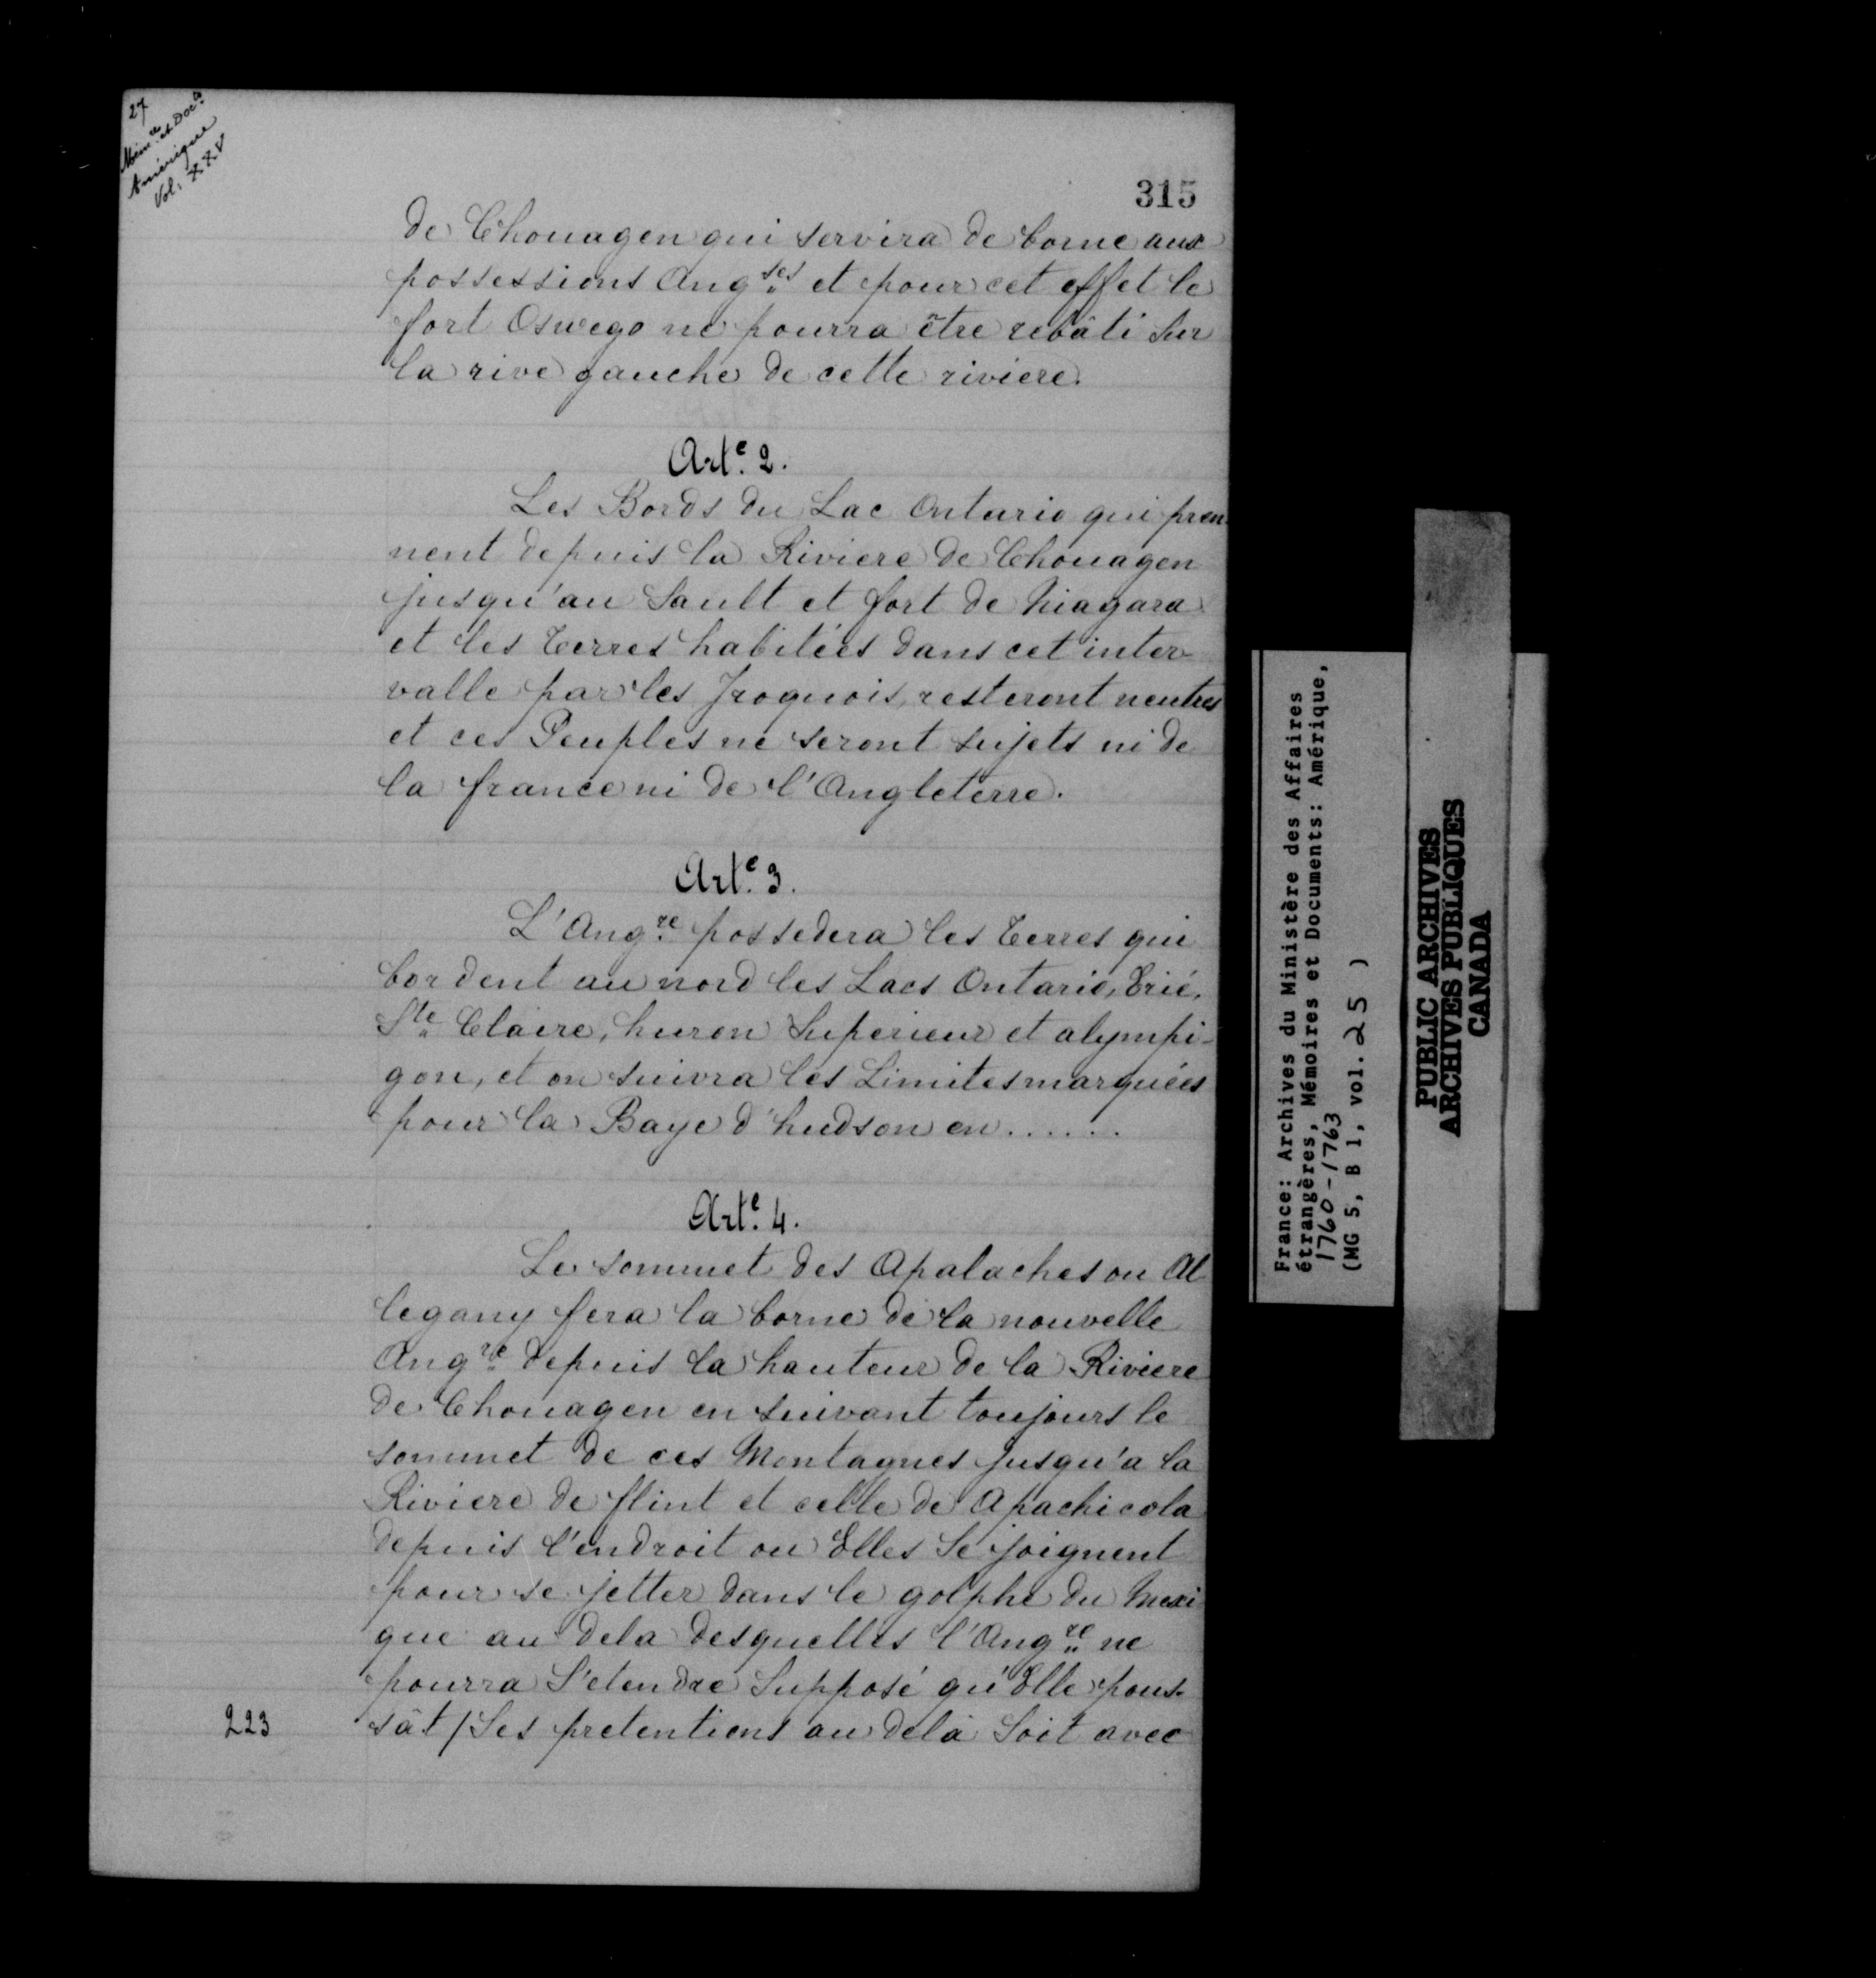 27
Mém.re et Doc.ts
Amérique
Vol. XXV
315
de Chouagen qui servira de borne aux
possessions Ang.ses et pour cet effet le
fort Oswego ne pourra être rebâti sur
la rive gauche de cette riviere.
Art.e 2.
Les Bords du Lac Ontario qui pren-
nent depuis la Riviere de Chouagen
jusqu'au Sault et fort de Niagara
et les terres habitées dans cet inter-
valle par les Iroquois, resteront neutres
et ces Peuples ne seront sujets ni de
la france ni de l'Angleterre.
Art.e 3.
L'Ang.re possedera les terres qui
bordent au nord les Lacs Ontario, Erié,
Ste Claire, huron Superieur et alympi-
gon, et on suivra les Limites marquées
pour la Baye d'hudson en......
Art.e 4.
Le sommet des Apalaches ou Al
legany fera la borne de la nouvelle
Ang.re depuis la hauteur de la Riviere
de Chouagen en suivant toujours le
sommet de ces Montagnes jusqu'a la
Riviere de flint et celle de Apachicola
depuis l'endroit ou Elles se joignent
pour se jetter dans le golphe du Mexi
que au dela desquelles l'Ang.re ne
pourra S'etendre Supposé qu'Elle pous-
223 sât / Ses pretentions au delà Soit avec
France: Archives du Ministère des Affaires
étrangères, Mémoires et Documents: Amérique,
1760-1763
(MG 5, B 1, vol. 25 )
PUBLIC ARCHIVES
ARCHIVES PUBLIQUES
CANADA